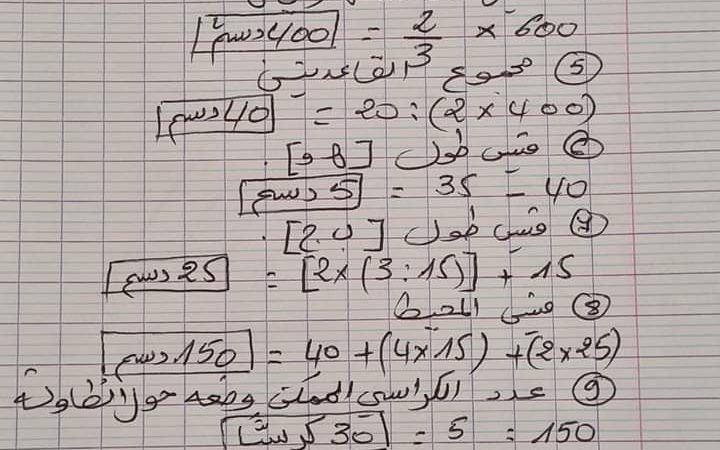 600 × 2/3 = 400 دسم²
⑤ مجموع القاعدتين
(400 × 2) : 20 = 40 دسم
⑥ قيس طول [ه و].
40 - 35 = 5 دسم
⑦ قيس طول [ب ج].
15 + [(15 : 3) × 2] = 25 دسم
⑧ قيس المحيط
(25 × 2) + (15 × 4) + 40 = 150 دسم
⑨ عدد الكراسي الممكن وضعه حول الطاولة
150 : 5 = 30 كرسيّا